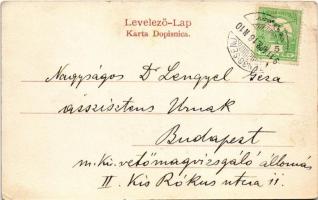 Levelező-Lap
Karta Dopisnica.
Nagyságos Dr Lengyel Géza
asszisztens Urnak
Budapest
m. kir. vetőmagvizsgáló állomás
II. Kis Rókus utca 11.